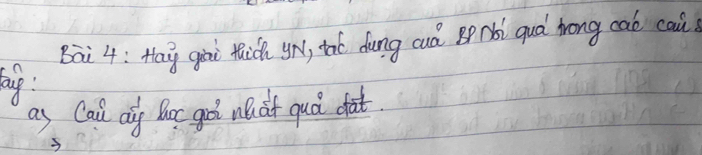 Bài 4: Hãy giải thích YN, tác dụng của BPNói quá trong các câu s
đây:
a, Cậu ấy học giỏi nhất quả đất.
→